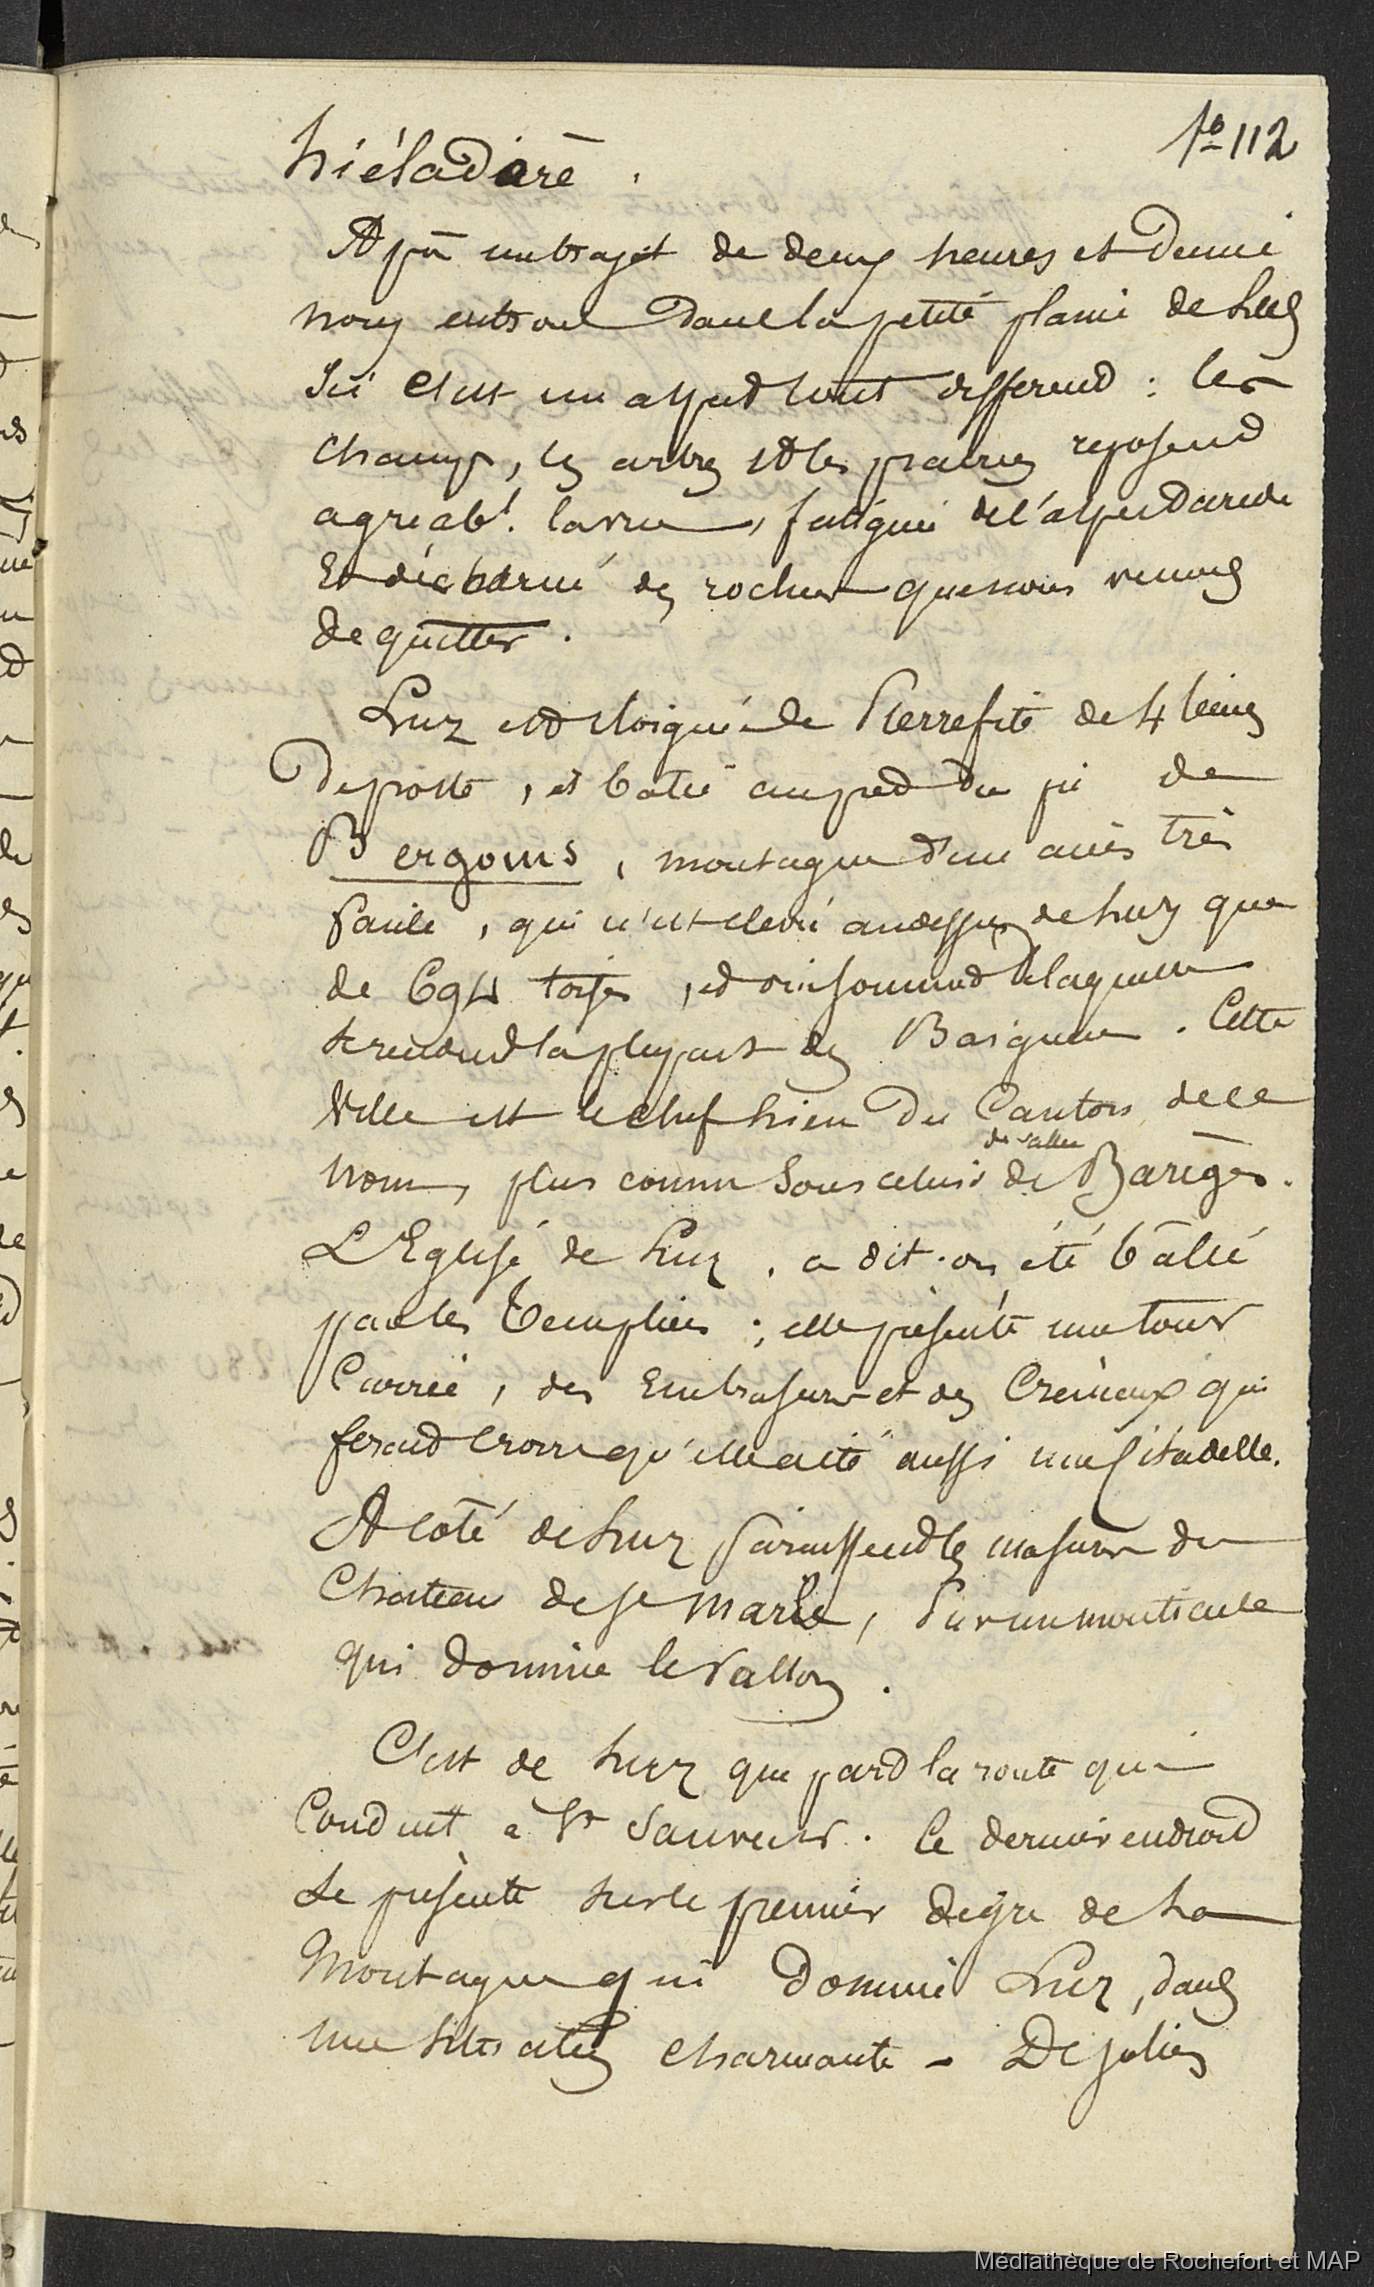 fo 112
hiéladère.
Après un trajet de deux heures et demie
nous entrons dans la petite plaine de Luz
Ici c'est un aspect tout different : les
champs, les arbres et les prairies reposent
agréabt. la vue, fatiguée de l'aspect aride
Et décharné des rochers que nous venons
de quitter.
Luz est éloignée de Pierrefite de 4 lieues
de poste, est batie au pied du pic de
Bergons, montagne d'un accès très
facile, qui n'est élevée audessus de Luz que
de 694 toises, et au sommet de laquelle
se rendent la plupart des Baigneurs. Cette
Ville est le chef lieu du Canton de ce
de vallée
nom, plus connu sous celui de Barèges.
L'Eglise de Luz, a dit-on été bâtie
par les Templiers ; elle présente une tour
Carrée, des Embrasures et des Créneaux qui
feraient croire qu'elle a été aussi une Citadelle.
A coté de Luz paraissent les masures du
Chateau de Ste Marie, sur un monticule
qui domine le vallon.
C'est de Luz que part la route qui
Conduit à St Sauveur. Ce dernier endroit
se présente sur le premier dégré de la
Montagne qui domine Luz, dans
une situation charmante - De jolies
Médiathèque de Rochefort et MAP